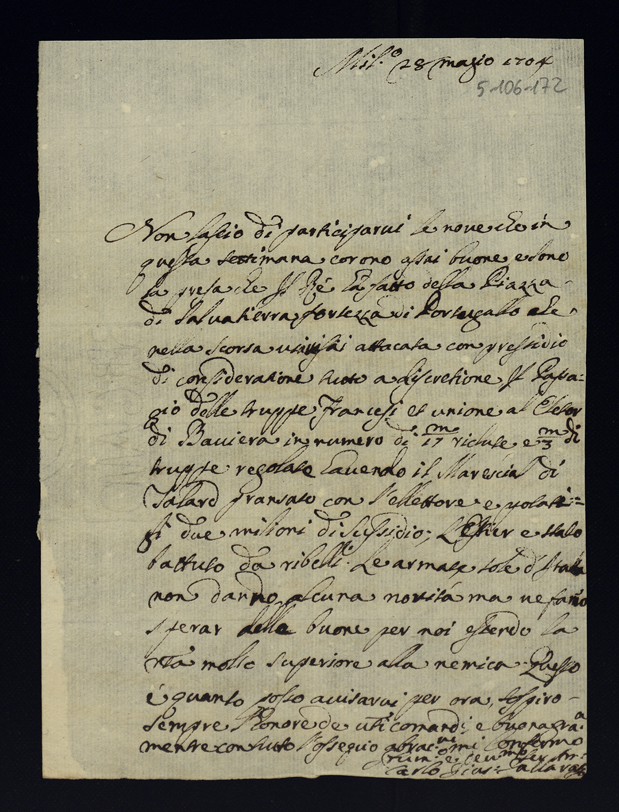 Mil.º 28 magio 1704
5-106-172
Non lascio di participarvi le nove che in
questa settimana corono assai buone e sono
la presa che Il Ré ha fatto della Piazza
di Salvatierra fortezza di Portugallo che
nella scorsa attacata con pressidio
di consideratione tutto a discretione Il Passa-
gio delle truppe francesi et unione al
di Baviera in numero di m/17 riclute e m/3 di
truppe regolate havendo il di
Talard pransato con l'ellettore e
due milioni di sussidio; e stato
battuto da ribelli. Le armate sole d'
non danno alcuna novità ma ne fanno
sperar delle buone per noi essendo la
molto superiore alla nemica. Questo
é quanto posso avisarvi per ora, sospiro
sempre l'honore de comandi, e
mente con tutto l'ossequio mi confermo
Carlo